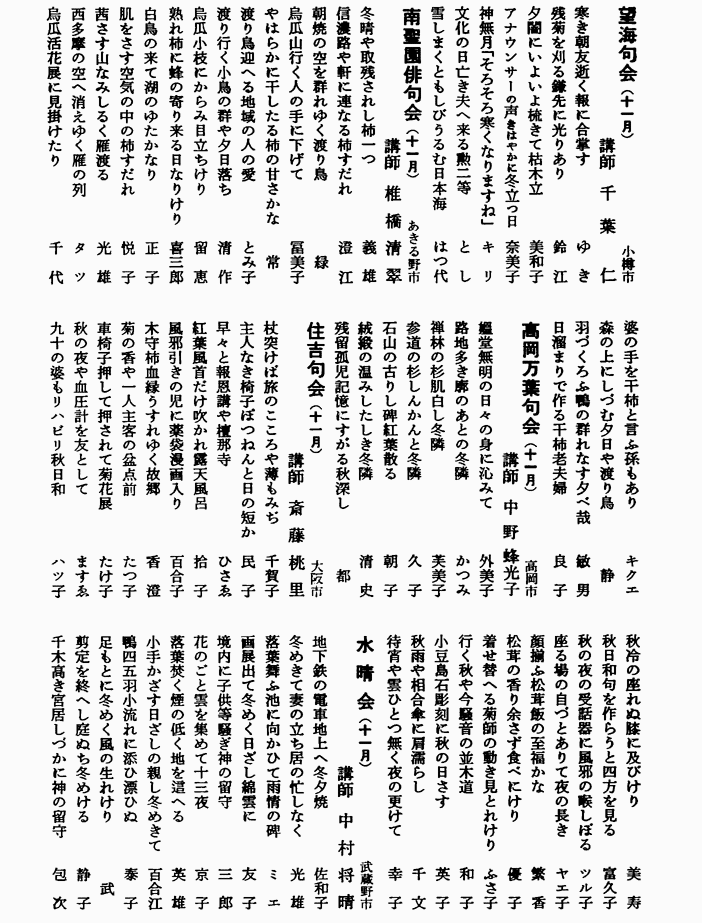 望海句会(十一月)
小樽市
講師 千葉 仁
寒き朝友逝く報に合掌す ゆき
残菊を刈る鎌先に光りあり 鈴江
夕闇にいよいよ梳きて枯木立 美和子
アナウンサーの声きはやかに冬立つ日 奈美子
神無月「そろそろ寒くなりますね」 キリ
文化の日亡き夫へ来る勲二等 とし
雪しまくともしびうるむ日本海 はつ代
南聖園俳句会(十一月)
あきる野市
講師 椎橋清翠
冬晴や取残されし柿一つ 義雄
信濃路や軒に連なる柿すだれ 澄江
朝焼の空を群れゆく渡り鳥 緑
烏瓜山行く人の手に下げて 冨美子
やはらかに干したる柿の甘さかな 常
渡り鳥迎へる地域の人の愛 とみ子
渡り行く小鳥の群や夕日落ち 清作
烏瓜小枝にからみ目立ちけり 留恵
熟れ柿に蜂の寄り来る日なりけり 喜三郎
白鳥の来て湖のゆたかなり 正子
肌をさす空気の中の柿すだれ 悦子
茜さす山なみしるく雁渡る 光雄
西多摩の空へ消えゆく雁の列 タツ
烏瓜活花展に見掛けたり 千代
婆の手を干柿と言ふ孫もあり キクエ
森の上にしづむ夕日や渡り鳥 静
羽づくろふ鴨の群れなす夕べ哉 敏男
日溜まりで作る干柿老夫婦 良子
高岡万葉句会(十一月)
高岡市
講師 中野蜂光子
龕堂無明の日々の身に沁みて 外美子
路地多き廓のあとの冬隣 かつみ
禅林の杉肌白し冬隣 芙美子
参道の杉しんかんと冬隣 久子
石山の古りし碑紅葉散る 朝子
絨緞の温みしたしき冬隣 清史
残留孤児記憶にすがる秋深し 都
住吉句会(十一月)
大阪市
講師 斎藤桃里
杖突けば旅のこころや薄もみぢ 千賀子
主人なき椅子ぽつねんと日の短か 民子
早々と報恩講や檀那寺 ひさゑ
紅葉風首だけ吹かれ露天風呂 拾子
風邪引きの児に薬袋漫画入り 百合子
木守柿血縁うすれゆく故郷 香澄
菊の香や一人主客の盆点前 たつ子
車椅子押して押されて菊花展 たけ子
秋の夜や血圧計を友として ますゑ
九十の婆もリハビリ秋日和 ハツ子
秋冷の座れぬ膝に及びけり 美寿
秋日和句を作らうと四方を見る 富久子
秋の夜の受話器に風邪の喉しぼる ツル子
座る場の自づとありて夜の長き ヤエ子
顔揃ふ松茸飯の至福かな 繁香
松茸の香り余さず食べにけり 優子
着せ替へる菊師の動き見とれけり ふさ子
行く秋や今騒音の並木道 和子
小豆島石彫刻に秋の日さす 英子
秋雨や相合傘に肩濡らし 千文
待宵や雲ひとつ無く夜の更けて 幸子
水晴会(十一月)
武蔵野市
講師 中村将晴
地下鉄の電車地上へ冬夕焼 佐和子
冬めきて妻の立ち居の忙しなく 光雄
落葉舞ふ池に向かひて雨情の碑 ミエ
画展出て冬めく日ざし綿雲に 友子
境内に子供等騒ぎ神の留守 三郎
花のごと雲を集めて十三夜 京子
落葉焚く煙の低く地を這へる 英雄
小手かざす日ざしの親し冬めきて 百合江
鴨四五羽小流れに添ひ漂ひぬ 泰子
足もとに冬めく風の生れけり 武
剪定を終へし庭ぬち冬めける 静子
千木高き宮居しづかに神の留守 包次